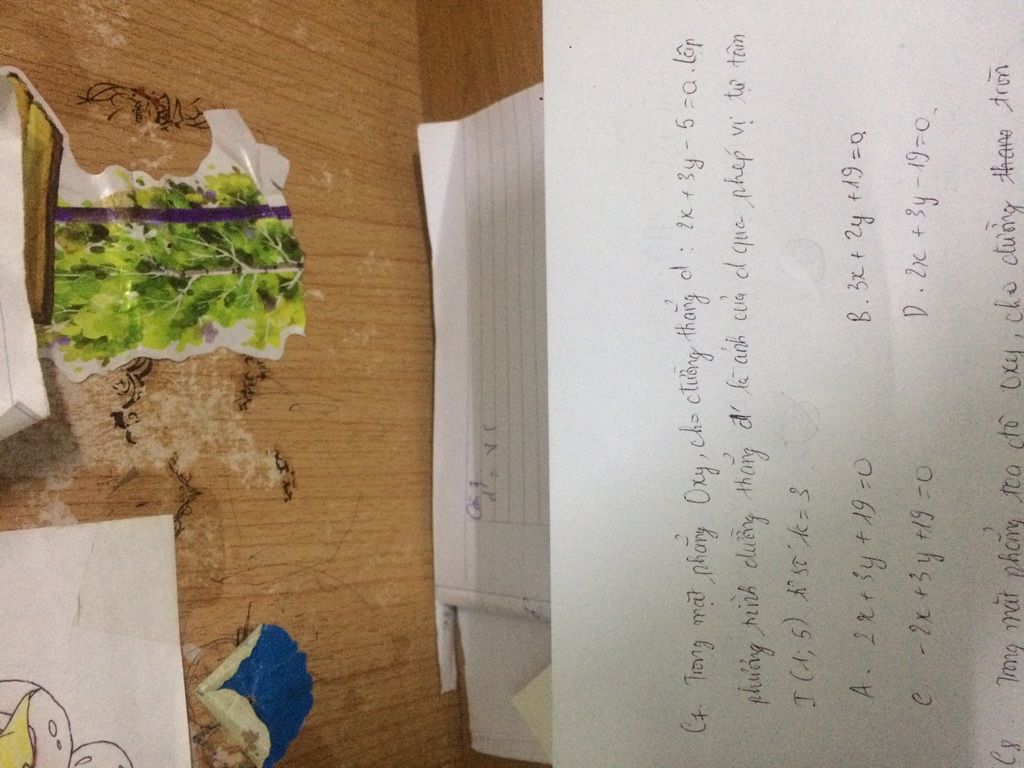 C7. Trong mặt phẳng Oxy, cho đường thẳng d : 2x + 3y - 5 = 0. Lập
phương trình đường thẳng d' là ảnh của d qua phép vị tự tâm
I (1; 5) tỉ số k = 3
A. 2x + 3y + 19 = 0
B. 3x + 2y + 19 = 0.
C. - 2x + 3y + 19 = 0
D. 2x + 3y - 19 = 0.
C8 Trong mặt phẳng tọa độ Oxy, cho đường thẳng tròn